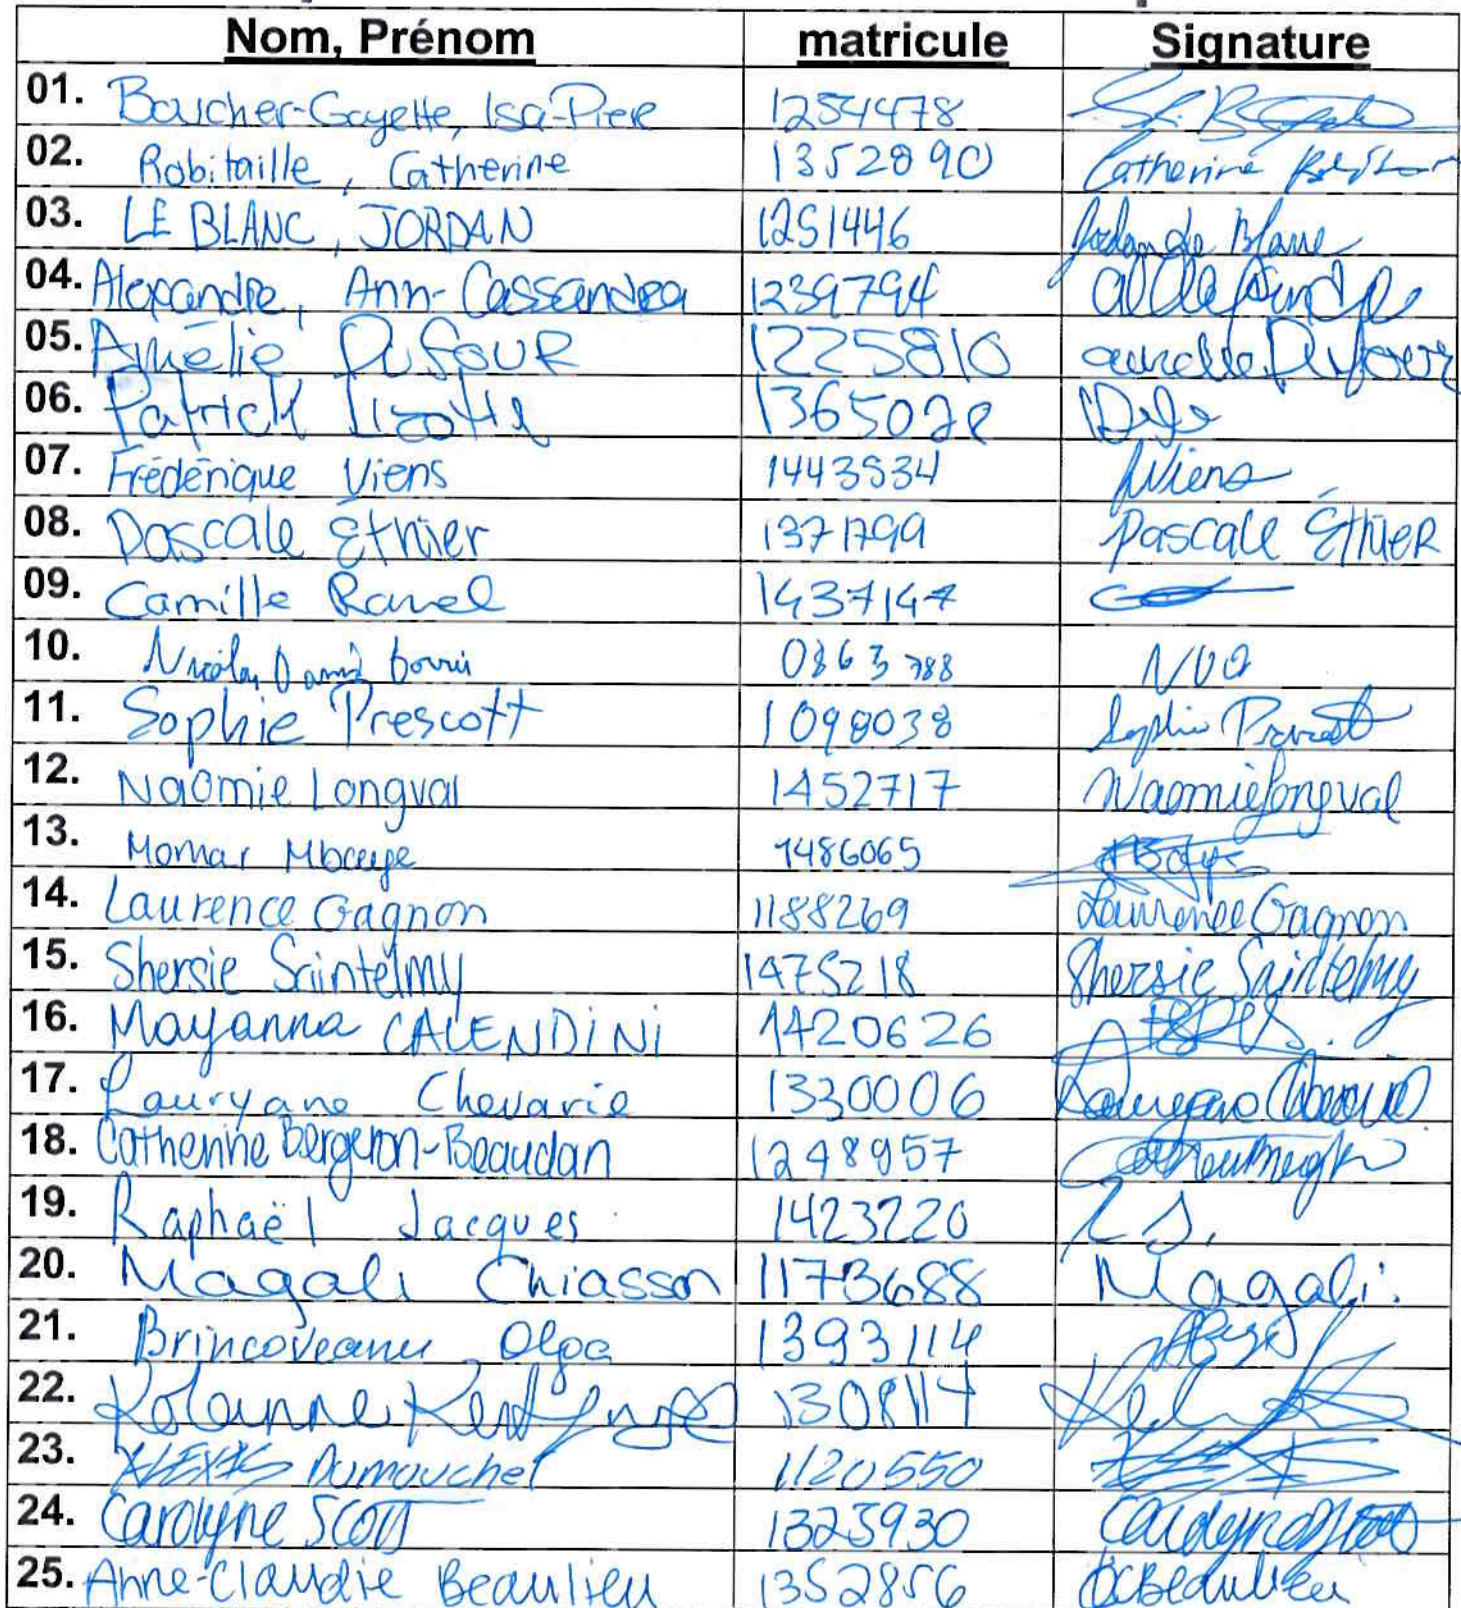 Nom, Prénom matricule Signature
01. Boucher-Gayette, Isa-Pierre 1254478
02. Robitaille, Catherine 1352890 Catherine
03. LE BLANC, JORDAN 1251446 Jordan Le Blanc
04. Alexandre, Ann-Cassandra 1239794
05. Amélie DufouR 1225810 Amélie Dufour
06. Patrick Lizotte
07. Frédérique Viens 1443534 FViens
08. Pascale Éthier 1371799 Pascale ÉthieR
09. Camille Ravel 1437147
10. 0863788
11. Sophie Prescott 1098038 Sophie Prescott
12. Naomie Longval 1452717 Naomie Longval
13. Momar Mbaye 1486065
14. Laurence Gagnon 1188269 Laurence Gagnon
15. Shersie Saintelmy 1475218 Shersie Saintelmy
16. Mayanna CALENDINI 1420626
17. Lauryane Chevarie 1330006 Lauryane Chevarie
18. Catherine Bergeron-Beaudan 1248957
19. Raphaël Jacques 1423220
20. Magali Chiasson 1173688 Magali.
21. Brincoveanu, Olga 1393114
22. 1308114
23. ALEXIS Dumouchel 1120550
24. Carolyne SCOTT 1323930 Carolyne Scott
25. Anne-Claudie Beaulieu 1352856 ACBeaulieu